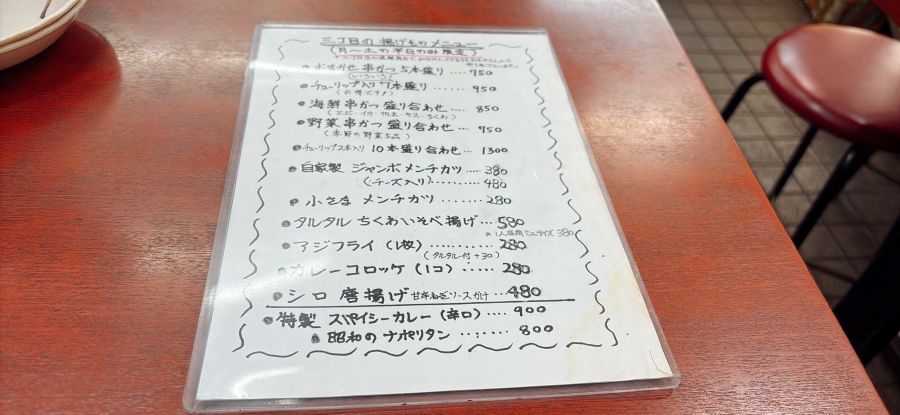 三丁目の揚げものメニュー
(月〜土の平日のみ限定)
おまかせ串かつ 5本盛り .... 750
(いろいろ)
チューリップ入り 7本盛り .... 950
(お得ですよ)
海鮮串かつ盛り合わせ .... 850
(エビ・イカ・ホタテ・キス・ちくわ)
野菜串かつ盛り合わせ .... 750
(季節の野菜5品)
チューリップ2本入り 10本盛り合わせ ... 1300
自家製 ジャンボメンチカツ .... 380
(チーズ入り) .......... 480
小さな メンチカツ ....... 280
タルタル ちくわいそべ揚げ ... 580
*1人様用ミニサイズ 380
アジフライ (1枚) .......... 280
(タルタル付+30)
カレーコロッケ (1コ) ..... 280
シロ 唐揚げ 甘辛ねぎソースがけ .... 480
特製 スパイシーカレー (辛口) .... 900
昭和の ナポリタン ....... 800